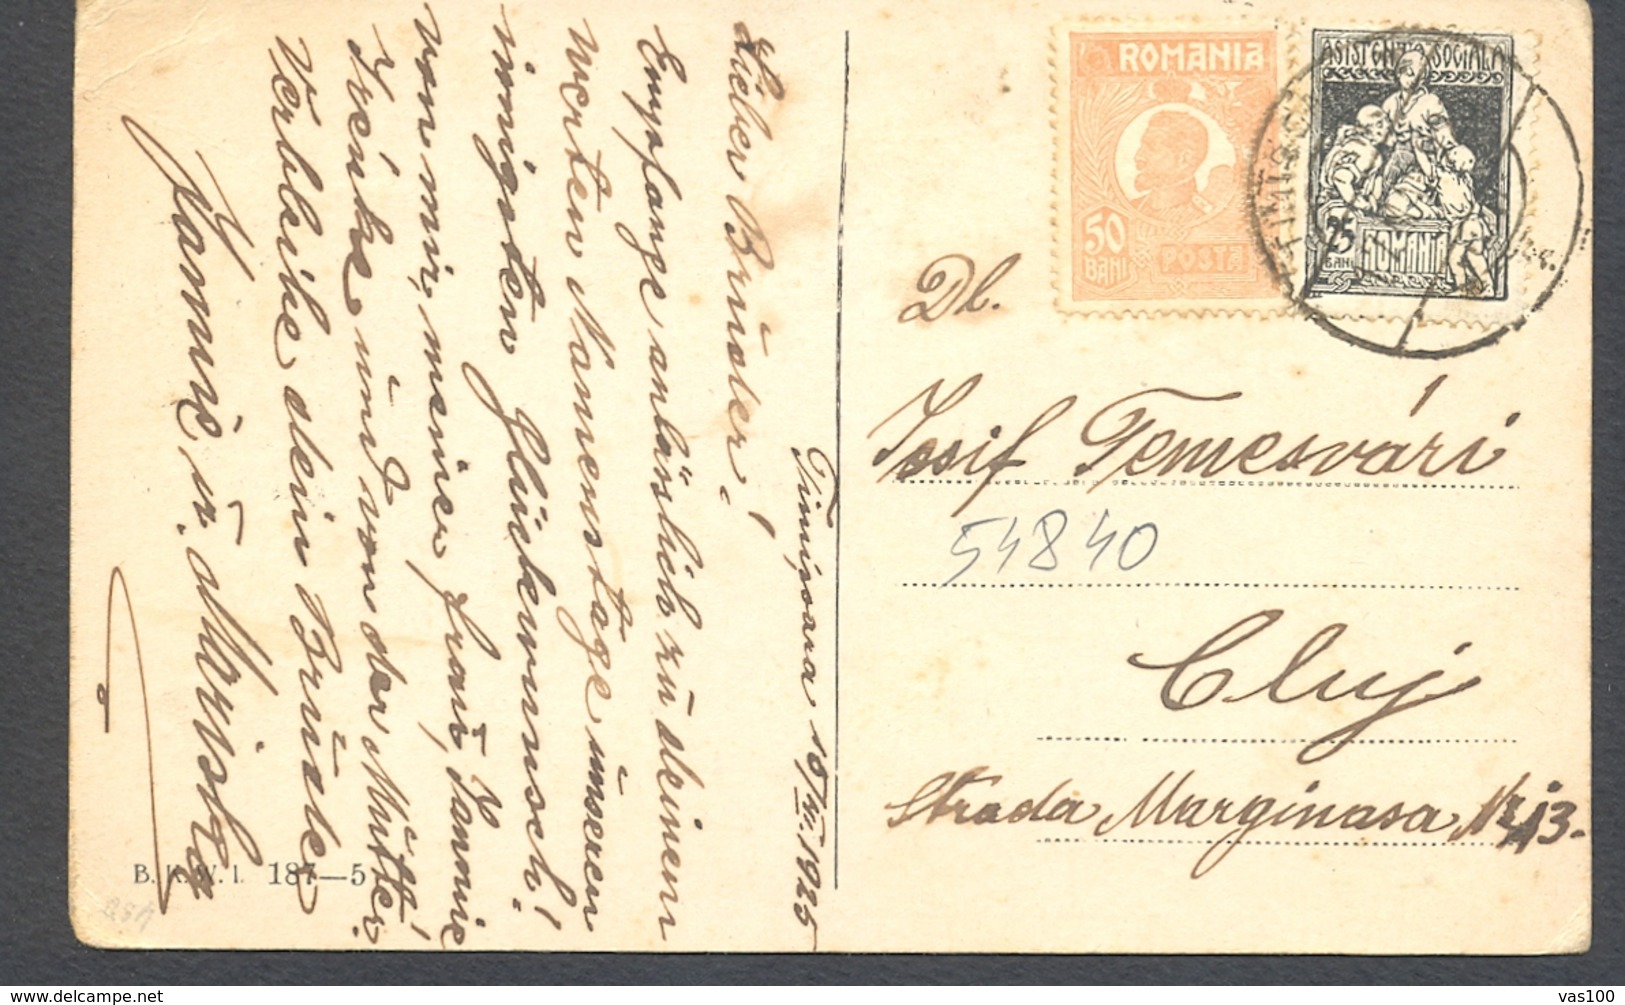 Timisoara 16/III. 1925
Lieber Brúder!
Empfange anläslich zú deinem
werten Namenstage únseren
innigsten Glückwunsch!
von mir, meiner fraú, Jannie
Irénke únd von der Mútter.
Verbleibe dein Brúder
Jannie ú. Mariska
B.K.W.I. 187—5
ROMANIA
50
BANI
POSTA
ASISTENTA SOCIALA
25
BANI
ROMANIA
Dl.
Iosif Temesvári
54840
Cluj
Strada Marginasa Nr 13.
vas100